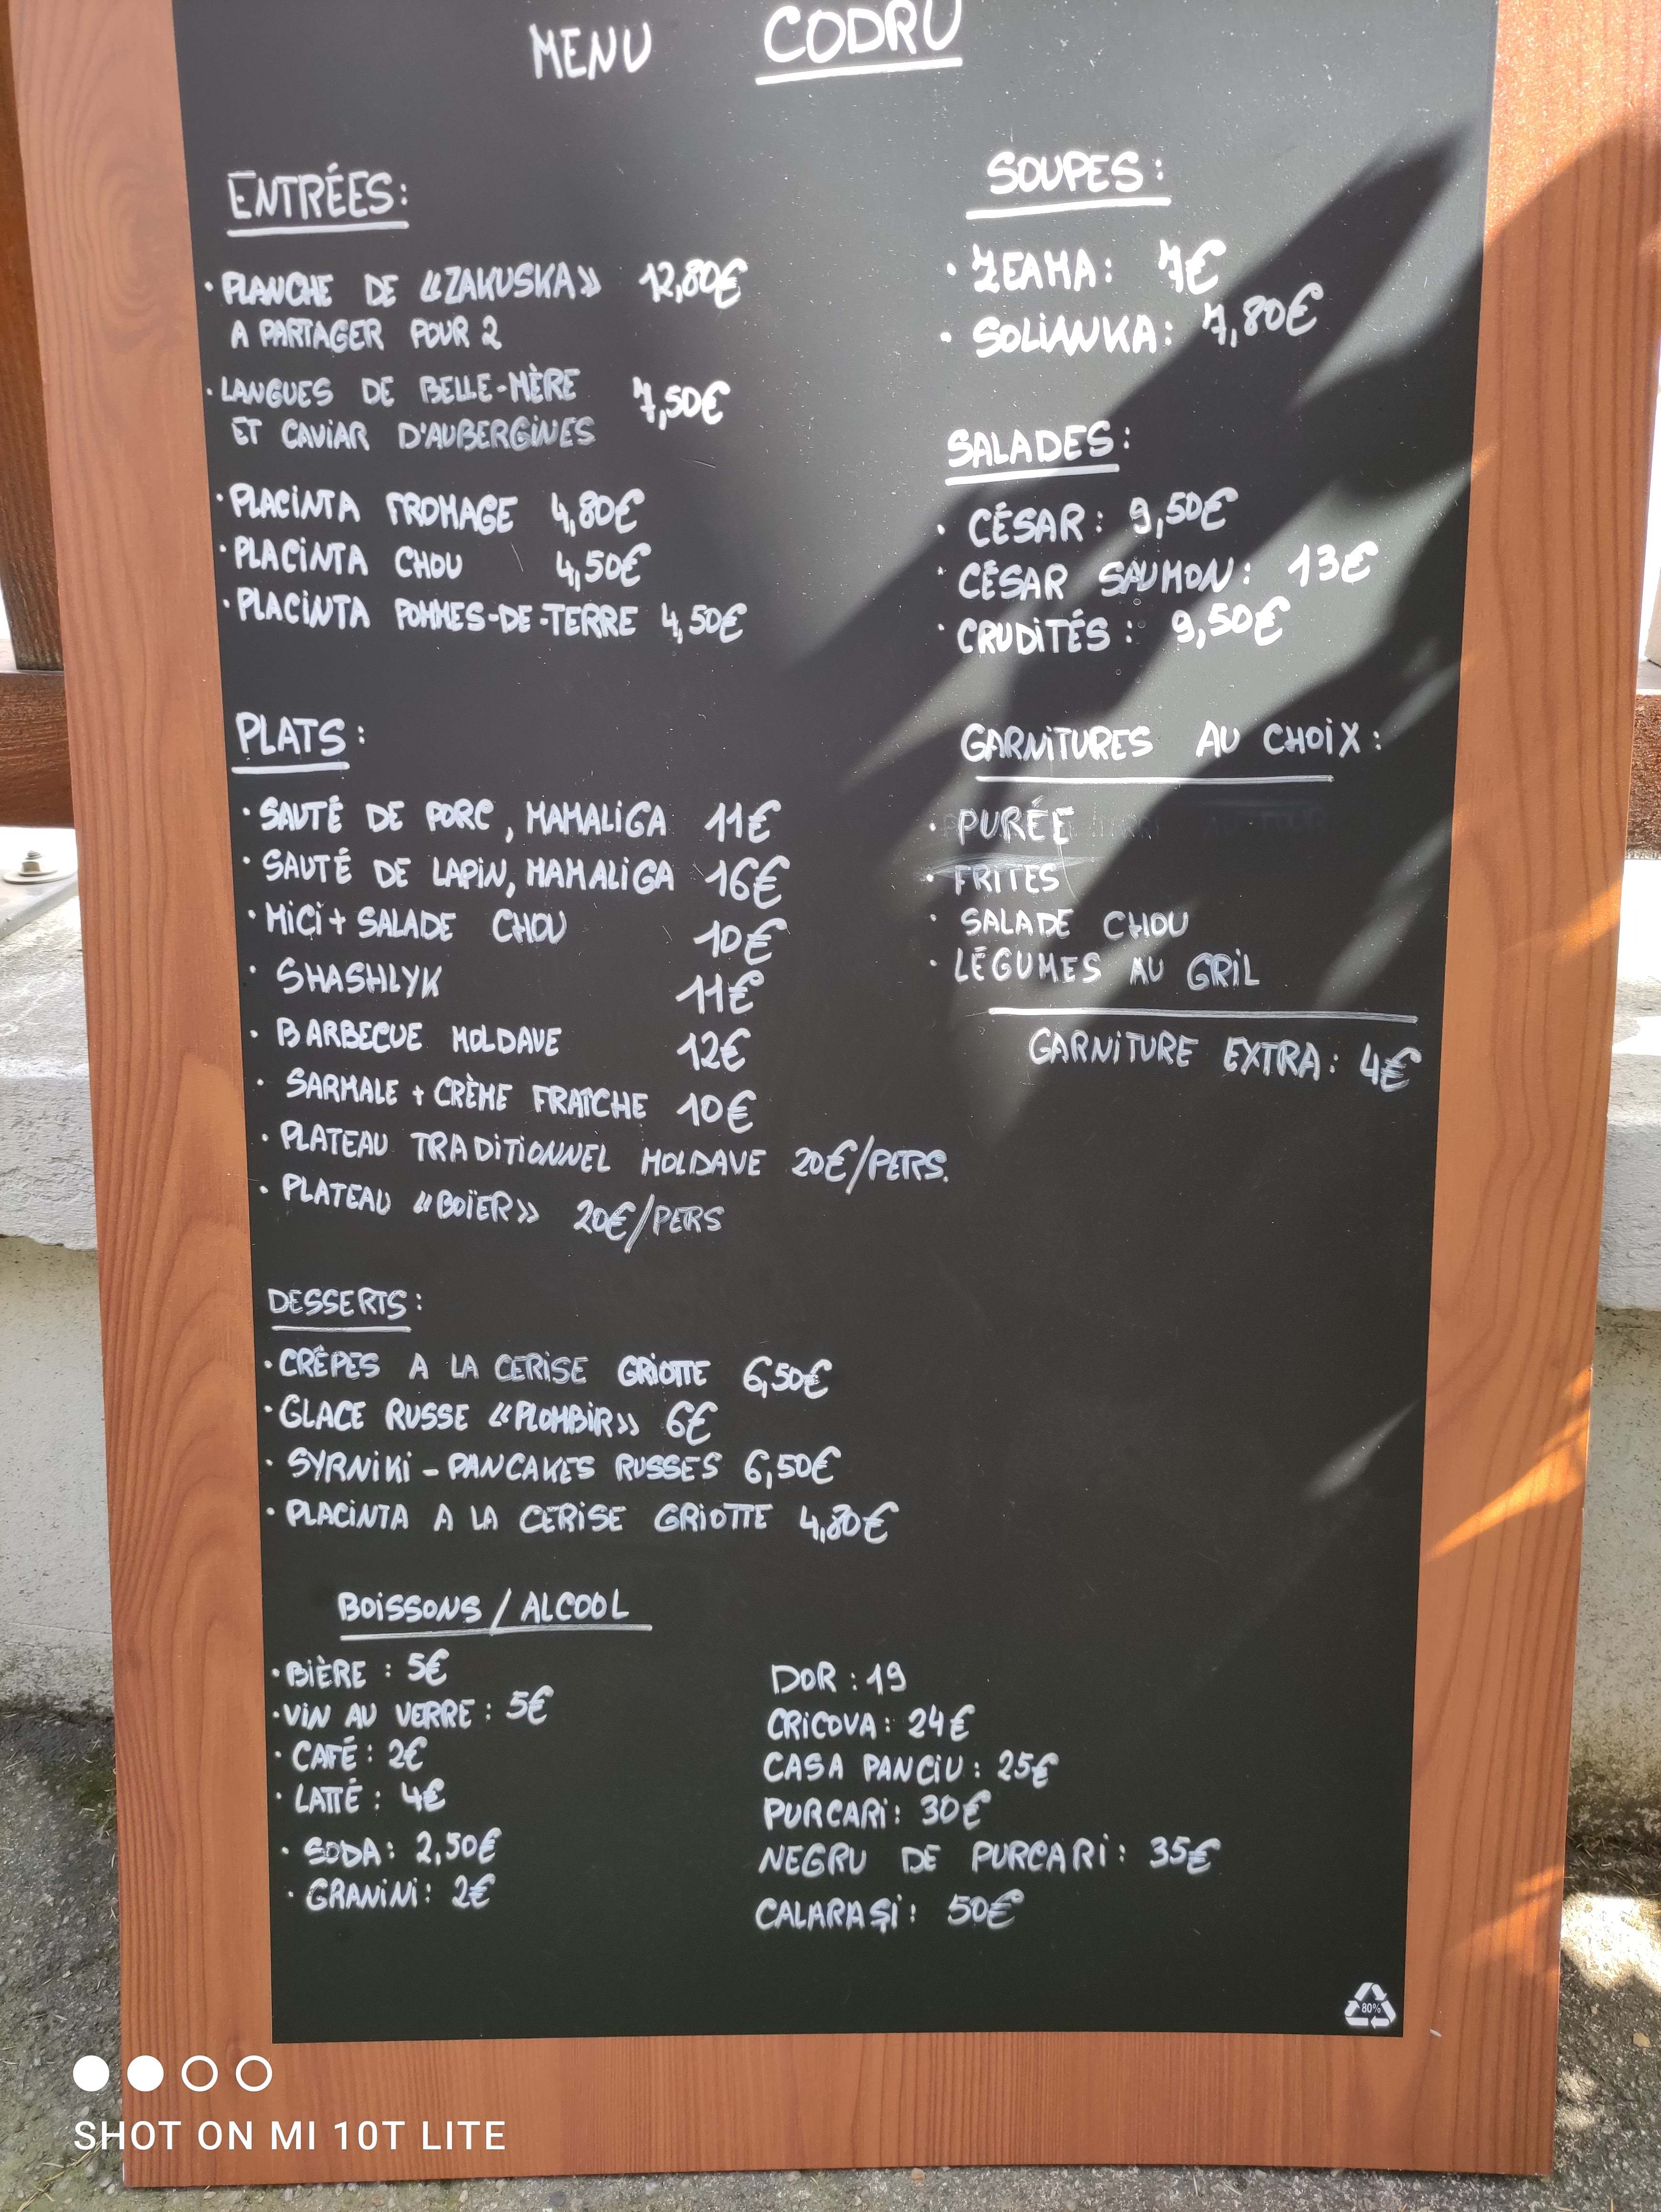 MENU CODRU
ENTRÉES:
· PLANCHE DE «ZAKUSKA» 12,80€
A PARTAGER POUR 2
· LANGUES DE BELLE-MÈRE 7,50€
ET CAViAR D'AUBERGiNES
· PLACiNTA FROMAGE 4,80€
· PLACiNTA CHOU 4,50€
· PLACiNTA POMMES-DE-TERRE 4,50€
SOUPES:
· ZEAMA: 7€
· SOLiANKA: 7,80€
SALADES:
· CÉSAR: 9,50€
· CÉSAR SAUMON: 13€
· CRUDiTÉS: 9,50€
PLATS:
· SAUTÉ DE PORC, MAMALiGA 11€
· SAUTÉ DE LAPiN, MAMALiGA 16€
· MiCi + SALADE CHOU 10€
· SHASHLYK 11€
· BARBECUE MOLDAVE 12€
· SARMALE + CRÈME FRAÎCHE 10€
· PLATEAU TRADiTiONNEL MOLDAVE 20€/PERS.
· PLATEAU «BOÏER» 20€/PERS
GARNiTURES AU CHOiX:
· PURÉE
· FRiTES
· SALADE CHOU
· LÉGUMES AU GRiL
GARNiTURE EXTRA: 4€
DESSERTS:
· CRÊPES A LA CERiSE GRiOTTE 6,50€
· GLACE RUSSE «PLOMBiR» 6€
· SYRNiKi - PANCAKES RUSSES 6,50€
· PLACiNTA A LA CERiSE GRiOTTE 4,80€
BOiSSONS / ALCOOL
· BiÈRE : 5€
· ViN AU VERRE : 5€
· CAFÉ : 2€
· LATTÉ : 4€
· SODA: 2,50€
· GRANiNi: 2€
DOR : 19
CRiCOVA: 24€
CASA PANCiU: 25€
PURCARi: 30€
NEGRU DE PURCARi: 35€
CALARAŞi: 50€
80%
SHOT ON MI 10T LITE